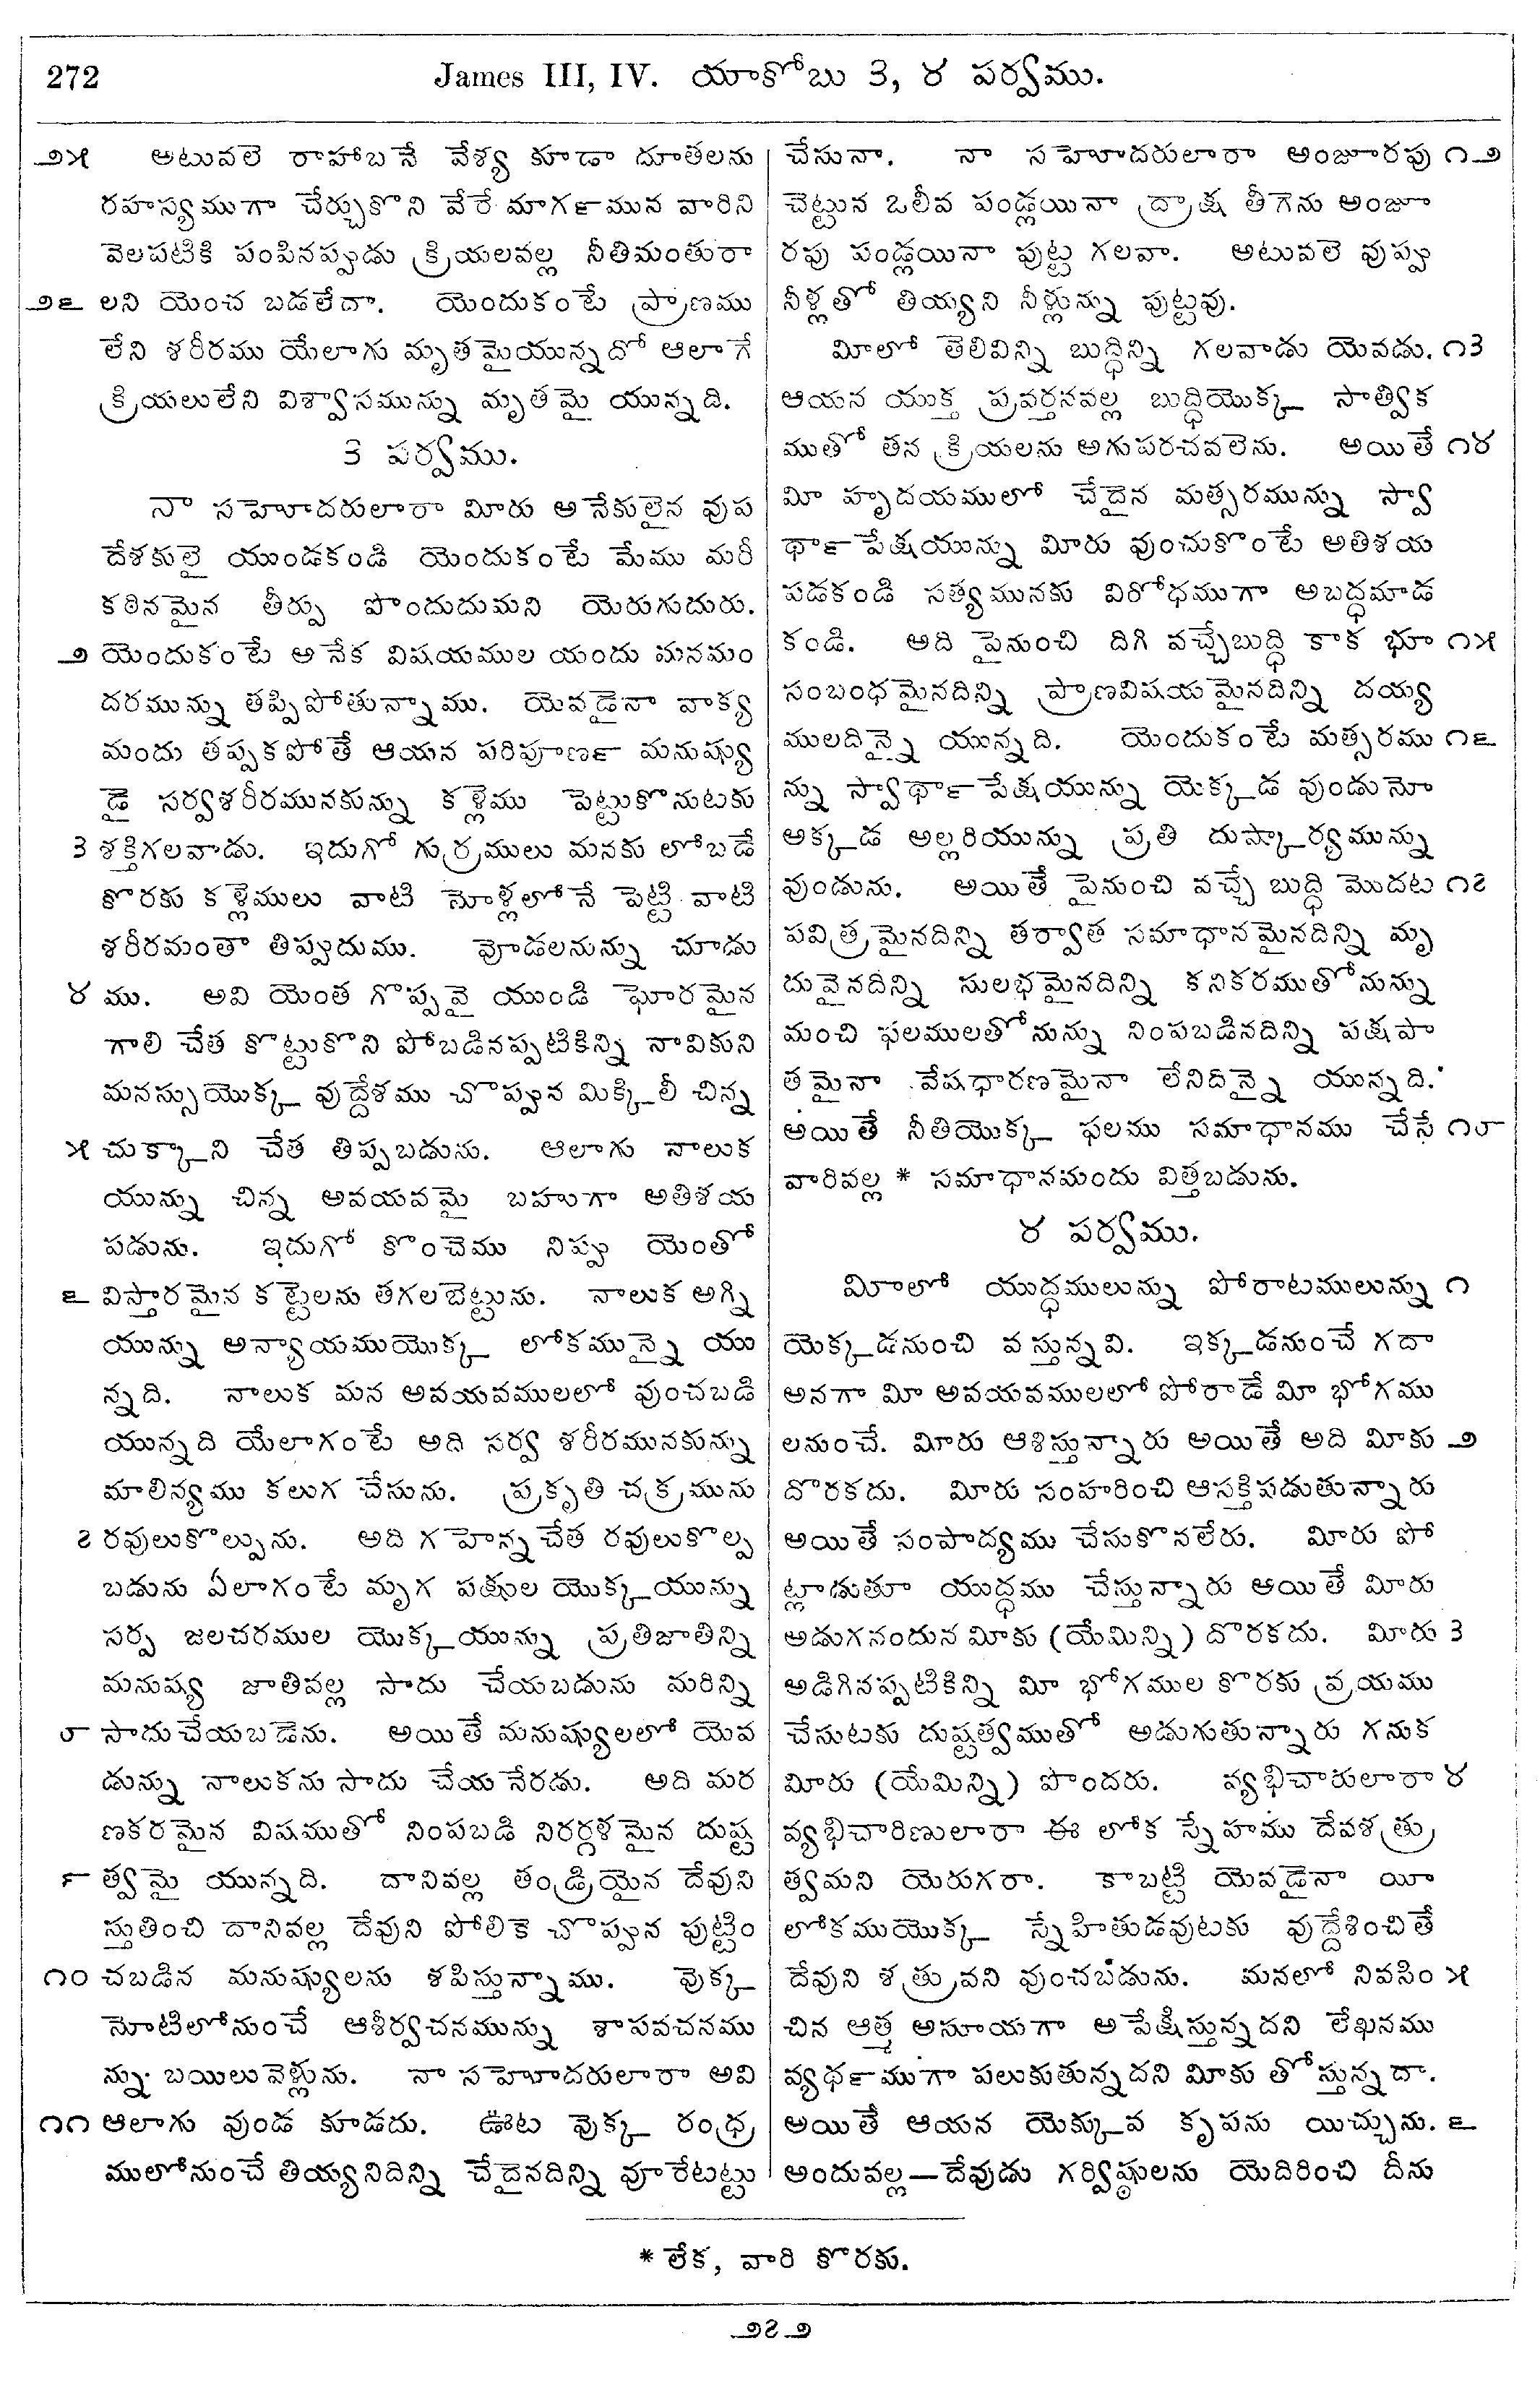 272 James III, IV. యాకోబు ౩, ౪ పర్వము.
౨౫ అటువలె రాహాబనే వేశ్య కూడా దూతలను
రహస్యముగా చేర్చుకొని వేరే మార్గమున వారిని
వెలపటికి పంపినప్పుడు క్రియలవల్ల నీతిమంతురా
౨౬ లని యెంచ బడలేదా. యెందుకంటే ప్రాణము
లేని శరీరము యేలాగు మృతమైయున్నదో ఆలాగే
క్రియలులేని విశ్వాసమున్ను మృతమై యున్నది.
౩ పర్వము.
నా సహోదరులారా మీరు అనేకులైన వుప
దేశకులై యుండకండి యెందుకంటే మేము మరీ
కఠినమైన తీర్పు పొందుదుమని యెరుగుదురు.
౨ యెందుకంటే అనేక విషయముల యందు మనమం
దరమున్ను తప్పిపోతున్నాము. యెవడైనా వాక్య
మందు తప్పకపోతే ఆయన పరిపూర్ణ మనుష్యు
డై సర్వశరీరమునకున్ను కళ్లెము పెట్టుకొనుటకు
౩ శక్తిగలవాడు. ఇదుగో గుర్రములు మనకు లోబడే
కొరకు కళ్లెములు వాటి నోళ్లలోనే పెట్టి వాటి
శరీరమంతా తిప్పుదుము. వోడలనున్ను చూడు
౪ ము. అవి యెంత గొప్పవై యుండి ఘోరమైన
గాలి చేత కొట్టుకొని పోబడినప్పటికిన్ని నావికుని
మనస్సుయొక్క వుద్దేశము చొప్పున మిక్కిలీ చిన్న
౫ చుక్కాని చేత తిప్పబడును. ఆలాగు నాలుక
యున్ను చిన్న అవయవమై బహుగా అతిశయ
పడును. ఇదుగో కొంచెము నిప్పు యెంతో
౬ విస్తారమైన కట్టెలను తగలబెట్టును. నాలుక అగ్ని
యున్ను అన్యాయముయొక్క లోకమున్నై యు
న్నది. నాలుక మన అవయవములలో వుంచబడి
యున్నది యేలాగంటే అది సర్వ శరీరమునకున్ను
మాలిన్యము కలుగ చేసును. ప్రకృతి చక్రమును
౭ రవులుకొల్పును. అది గహెన్న చేత రవులుకొల్ప
బడును ఏలాగంటే మృగ పక్షుల యొక్కయున్ను
సర్ప జలచరముల యొక్కయున్ను ప్రతిజాతిన్ని
మనుష్య జాతివల్ల సాదు చేయబడును మరిన్ని
౮ సాదుచేయబడెను. అయితే మనుష్యులలో యెవ
డున్ను నాలుకను సాదు చేయనేరడు. అది మర
ణకరమైన విషముతో నింపబడి నిరర్గళమైన దుష్ట
౯ త్వమై యున్నది. దానివల్ల తండ్రియైన దేవుని
స్తుతించి దానివల్ల దేవుని పోలికె చొప్పున పుట్టిం
౧౦ చబడిన మనుష్యులను శపిస్తున్నాము. వొక్క
నోటిలోనుంచే ఆశీర్వచనమున్ను శాపవచనము
న్ను బయిలువెళ్లును. నా సహోదరులారా అవి
౧౧ ఆలాగు వుండ కూడదు. ఊట వొక్క రంధ్ర
ములోనుంచే తియ్యనిదిన్ని చేదైనదిన్ని వూరేటట్టు
చేసునా. నా సహోదరులారా అంజూరపు ౧౨
చెట్టున ఒలీవ పండ్లయినా ద్రాక్ష తీగెను అంజూ
రపు పండ్లయినా పుట్ట గలవా. అటువలె వుప్పు
నీళ్లతో తియ్యని నీళ్లున్ను పుట్టవు.
మీలో తెలివిన్ని బుద్ధిన్ని గలవాడు యెవడు. ౧౩
ఆయన యుక్త ప్రవర్తనవల్ల బుద్ధియొక్క సాత్విక
ముతో తన క్రియలను అగుపరచవలెను. అయితే ౧౪
మీ హృదయములో చేదైన మత్సరమున్ను స్వా
ర్థాపేక్షయున్ను మీరు వుంచుకొంటే అతిశయ
పడకండి సత్యమునకు విరోధముగా అబద్ధమాడ
కండి. అది పైనుంచి దిగి వచ్చేబుద్ధి కాక భూ ౧౫
సంబంధమైనదిన్ని ప్రాణవిషయమైనదిన్ని దయ్య
ములదిన్నై యున్నది. యెందుకంటే మత్సరము ౧౬
న్ను స్వార్థాపేక్షయున్ను యెక్కడ వుండునో
అక్కడ అల్లరియున్ను ప్రతి దుష్కార్యమున్ను
వుండును. అయితే పైనుంచి వచ్చే బుద్ధి మొదట ౧౭
పవిత్రమైనదిన్ని తర్వాత సమాధానమైనదిన్ని మృ
దువైనదిన్ని సులభమైనదిన్ని కనికరముతోనున్ను
మంచి ఫలములతోనున్ను నింపబడినదిన్ని పక్షపా
తమైనా వేషధారణమైనా లేనిదిన్నై యున్నది.
అయితే నీతియొక్క ఫలము సమాధానము చేసే ౧౮
వారివల్ల * సమాధానమందు విత్తబడును.
౪ పర్వము.
మీలో యుద్ధములున్ను పోరాటములున్ను ౧
యెక్కడనుంచి వస్తున్నవి. ఇక్కడనుంచే గదా
అనగా మీ అవయవములలో పోరాడే మీ భోగము
లనుంచే. మీరు ఆశిస్తున్నారు అయితే అది మీకు ౨
దొరకదు. మీరు సంహరించి ఆసక్తిపడుతున్నారు
అయితే సంపాద్యము చేసుకొనలేరు. మీరు పో
ట్లాడుతూ యుద్ధము చేస్తున్నారు అయితే మీరు
అడుగనందున మీకు (యేమిన్ని) దొరకదు. మీరు ౩
అడిగినప్పటికిన్ని మీ భోగముల కొరకు వ్రయము
చేసుటకు దుష్టత్వముతో అడుగుతున్నారు గనుక
మీరు (యేమిన్ని) పొందరు. వ్యభిచారులారా ౪
వ్యభిచారిణులారా ఈ లోక స్నేహము దేవశత్రు
త్వమని యెరుగరా. కాబట్టి యెవడైనా యీ
లోకముయొక్క స్నేహితుడవుటకు వుద్దేశించితే
దేవుని శత్రువని వుంచబడును. మనలో నివసిం ౫
చిన ఆత్మ అసూయగా అపేక్షిస్తున్నదని లేఖనము
వ్యర్థముగా పలుకుతున్నదని మీకు తోస్తున్నదా.
అయితే ఆయన యెక్కువ కృపను యిచ్చును. ౬
అందువల్ల—దేవుడు గర్విష్ఠులను యెదిరించి దీను
* లేక, వారి కొరకు.
౨౭౨